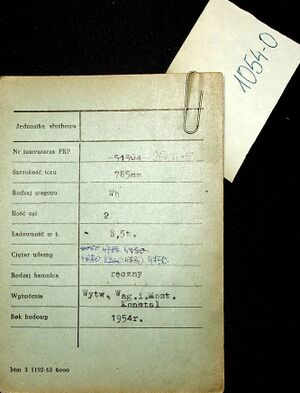 1054-0
Jednostka służbowa
Nr inwentarza PKP 51304
Szerokość toru 785mm
Rodzaj wagonu Wh
Ilość osi 2
Ładowność w t. 8,5t.
Ciężar własny 4750
Rodzaj hamulca ręczny
Wytwórnia Wytw. Wag.i.Most.
Konstal
Rok budowy 1954r.
htm 3 1192-62 6000